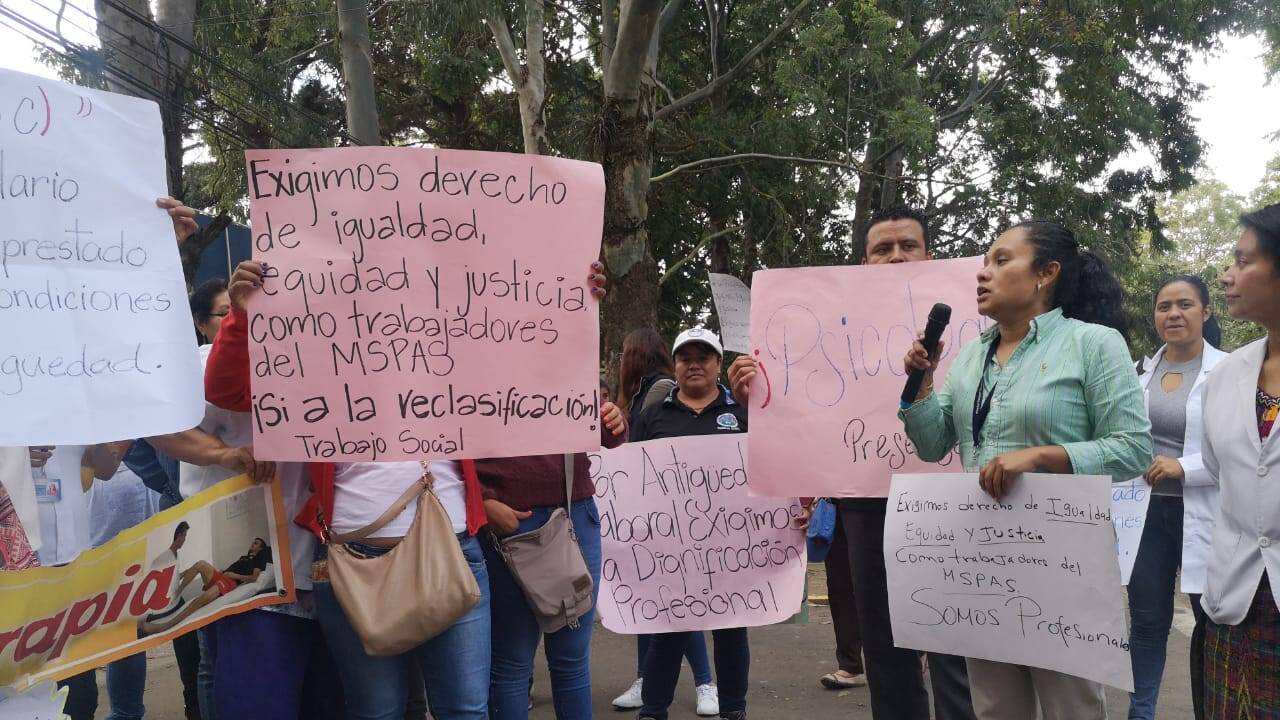 C) "
lario
prestado
ondiciones
guedad.
Exigimos derecho
de igualdad,
equidad y justicia,
como trabajadores
del MSPAS
¡Si a la reclasificación!
Trabajo Social
rapia
Por Antigüed
aboral Exigimos
a Dignificación
Profesional
¡Psicolog
Prese
Exigimos derecho de Igualdad
Equidad y Justicia
Como trabajadores del
MSPAS.
Somos Profesional